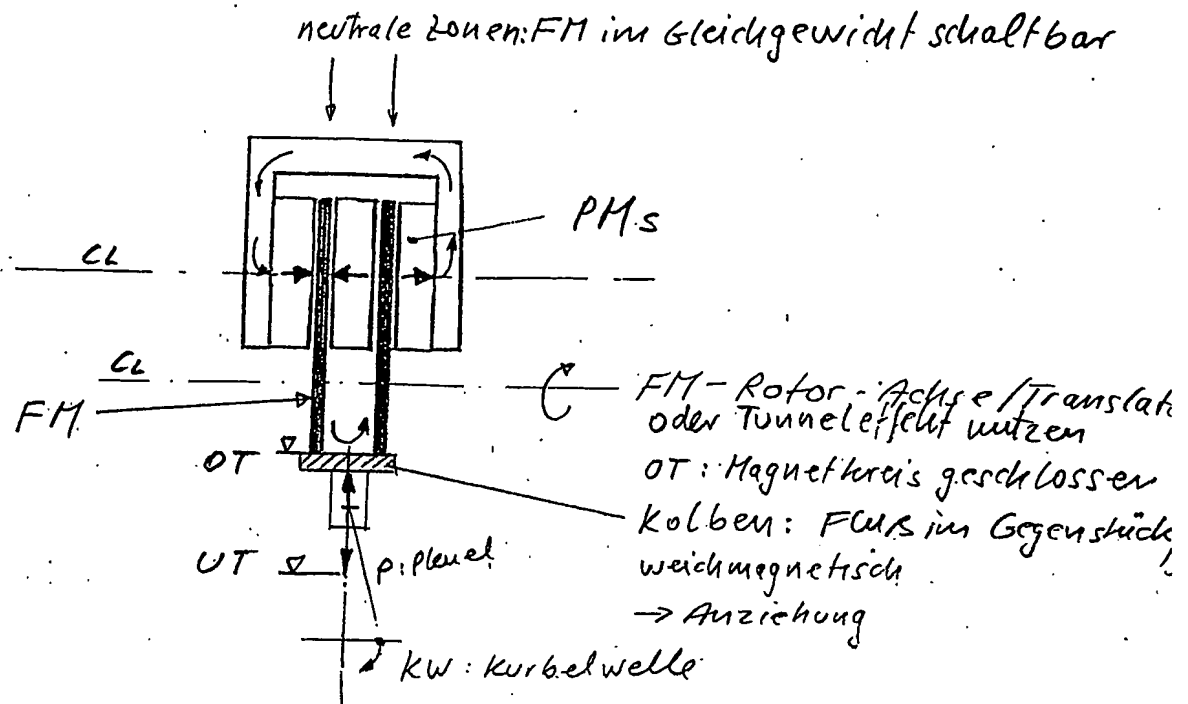 neutrale Zonen: FM im Gleichgewicht schaltbar
PMs
CL
CL
FM
FM-Rotor-Achse/Translat
oder Tunneleffekt nutzen
OT
OT: Magnetkreis geschlossen
Kolben: Fluß im Gegenstück,
weichmagnetisch
→ Anziehung
UT
p: Pleuel
KW: Kurbelwelle